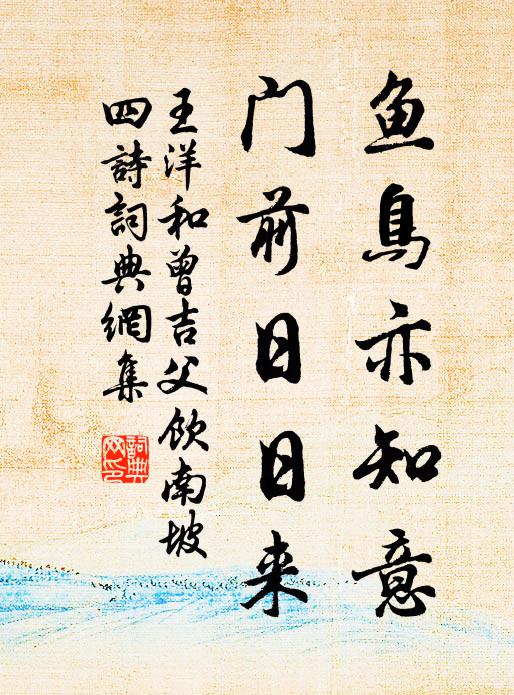 鱼鳥亦知意
门前日日来
王洋和曾吉父饮南坡
四詩詞典網集
詞典
网印